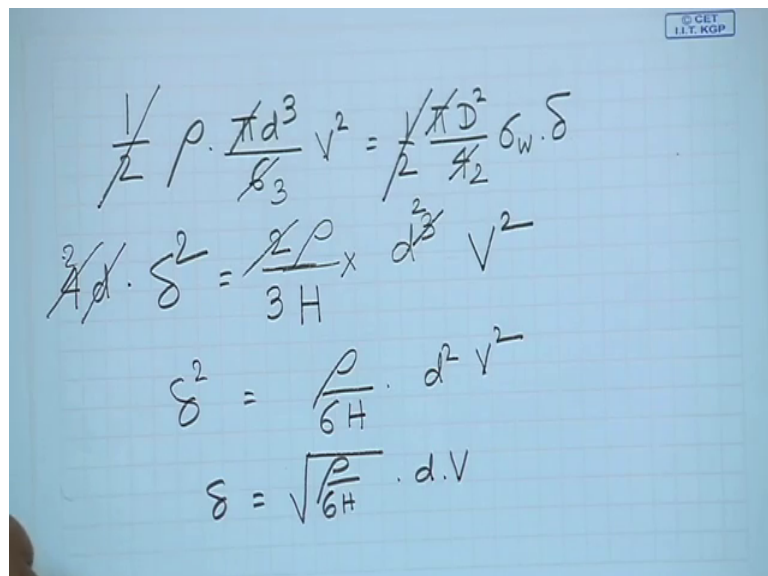 © CET
I.I.T. KGP
1/2 ρ · πd³/6 3 V² = 1/2 πD²/4 2 σw · δ
2 4d · δ² = 2ρ/3H × d² 3 V²
δ² = ρ/6H · d² V²
δ = √ρ/6H · d.V